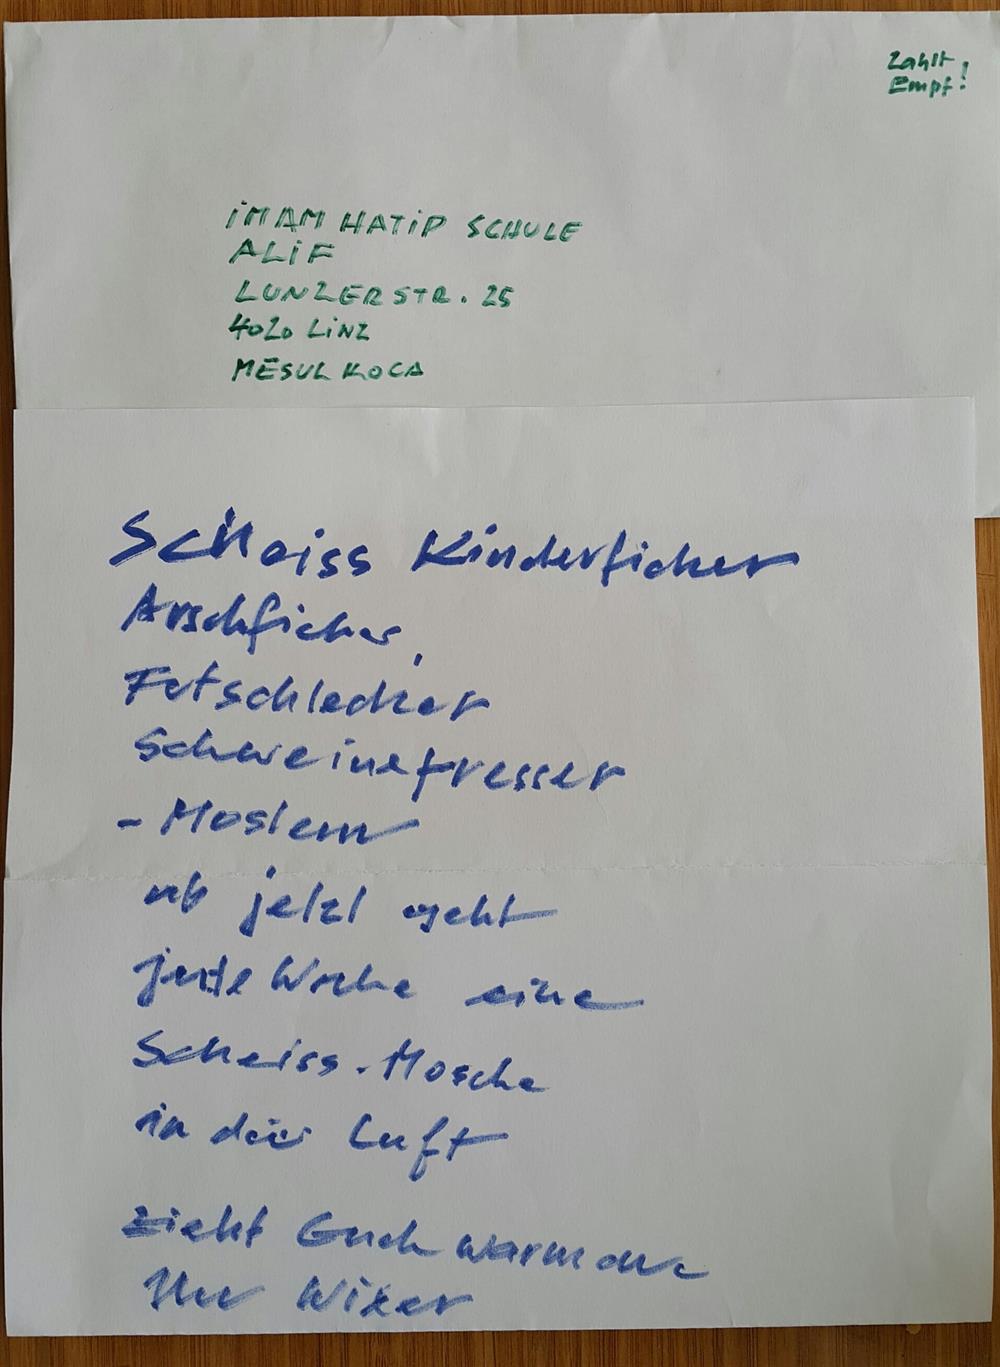 Zahlt
Empf!
iMAM HATiP SCHULE
ALiF
LUNZERSTR. 25
4020 LiNZ
MESUL KOCA
Scheiss Kinderficker
Arschficker,
Fotschlecker
Schweinefresser
- Moslem
ab jetzt geht
jede Woche eine
Scheiss-Mosche
in die Luft
zieht Euch warm an
Ihr Wixer